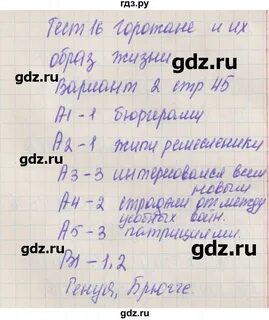 Тест 16 горожане и их
образ жизни
Вариант 2 стр 45
А1-1 бюргерами
А2-1 жили ремесленики
А3-3 интересовался всем
новым
А4-2 страдали от между
усобных войн.
А5-3 патрициями.
В1-1,2
Генуя, Брюгге.